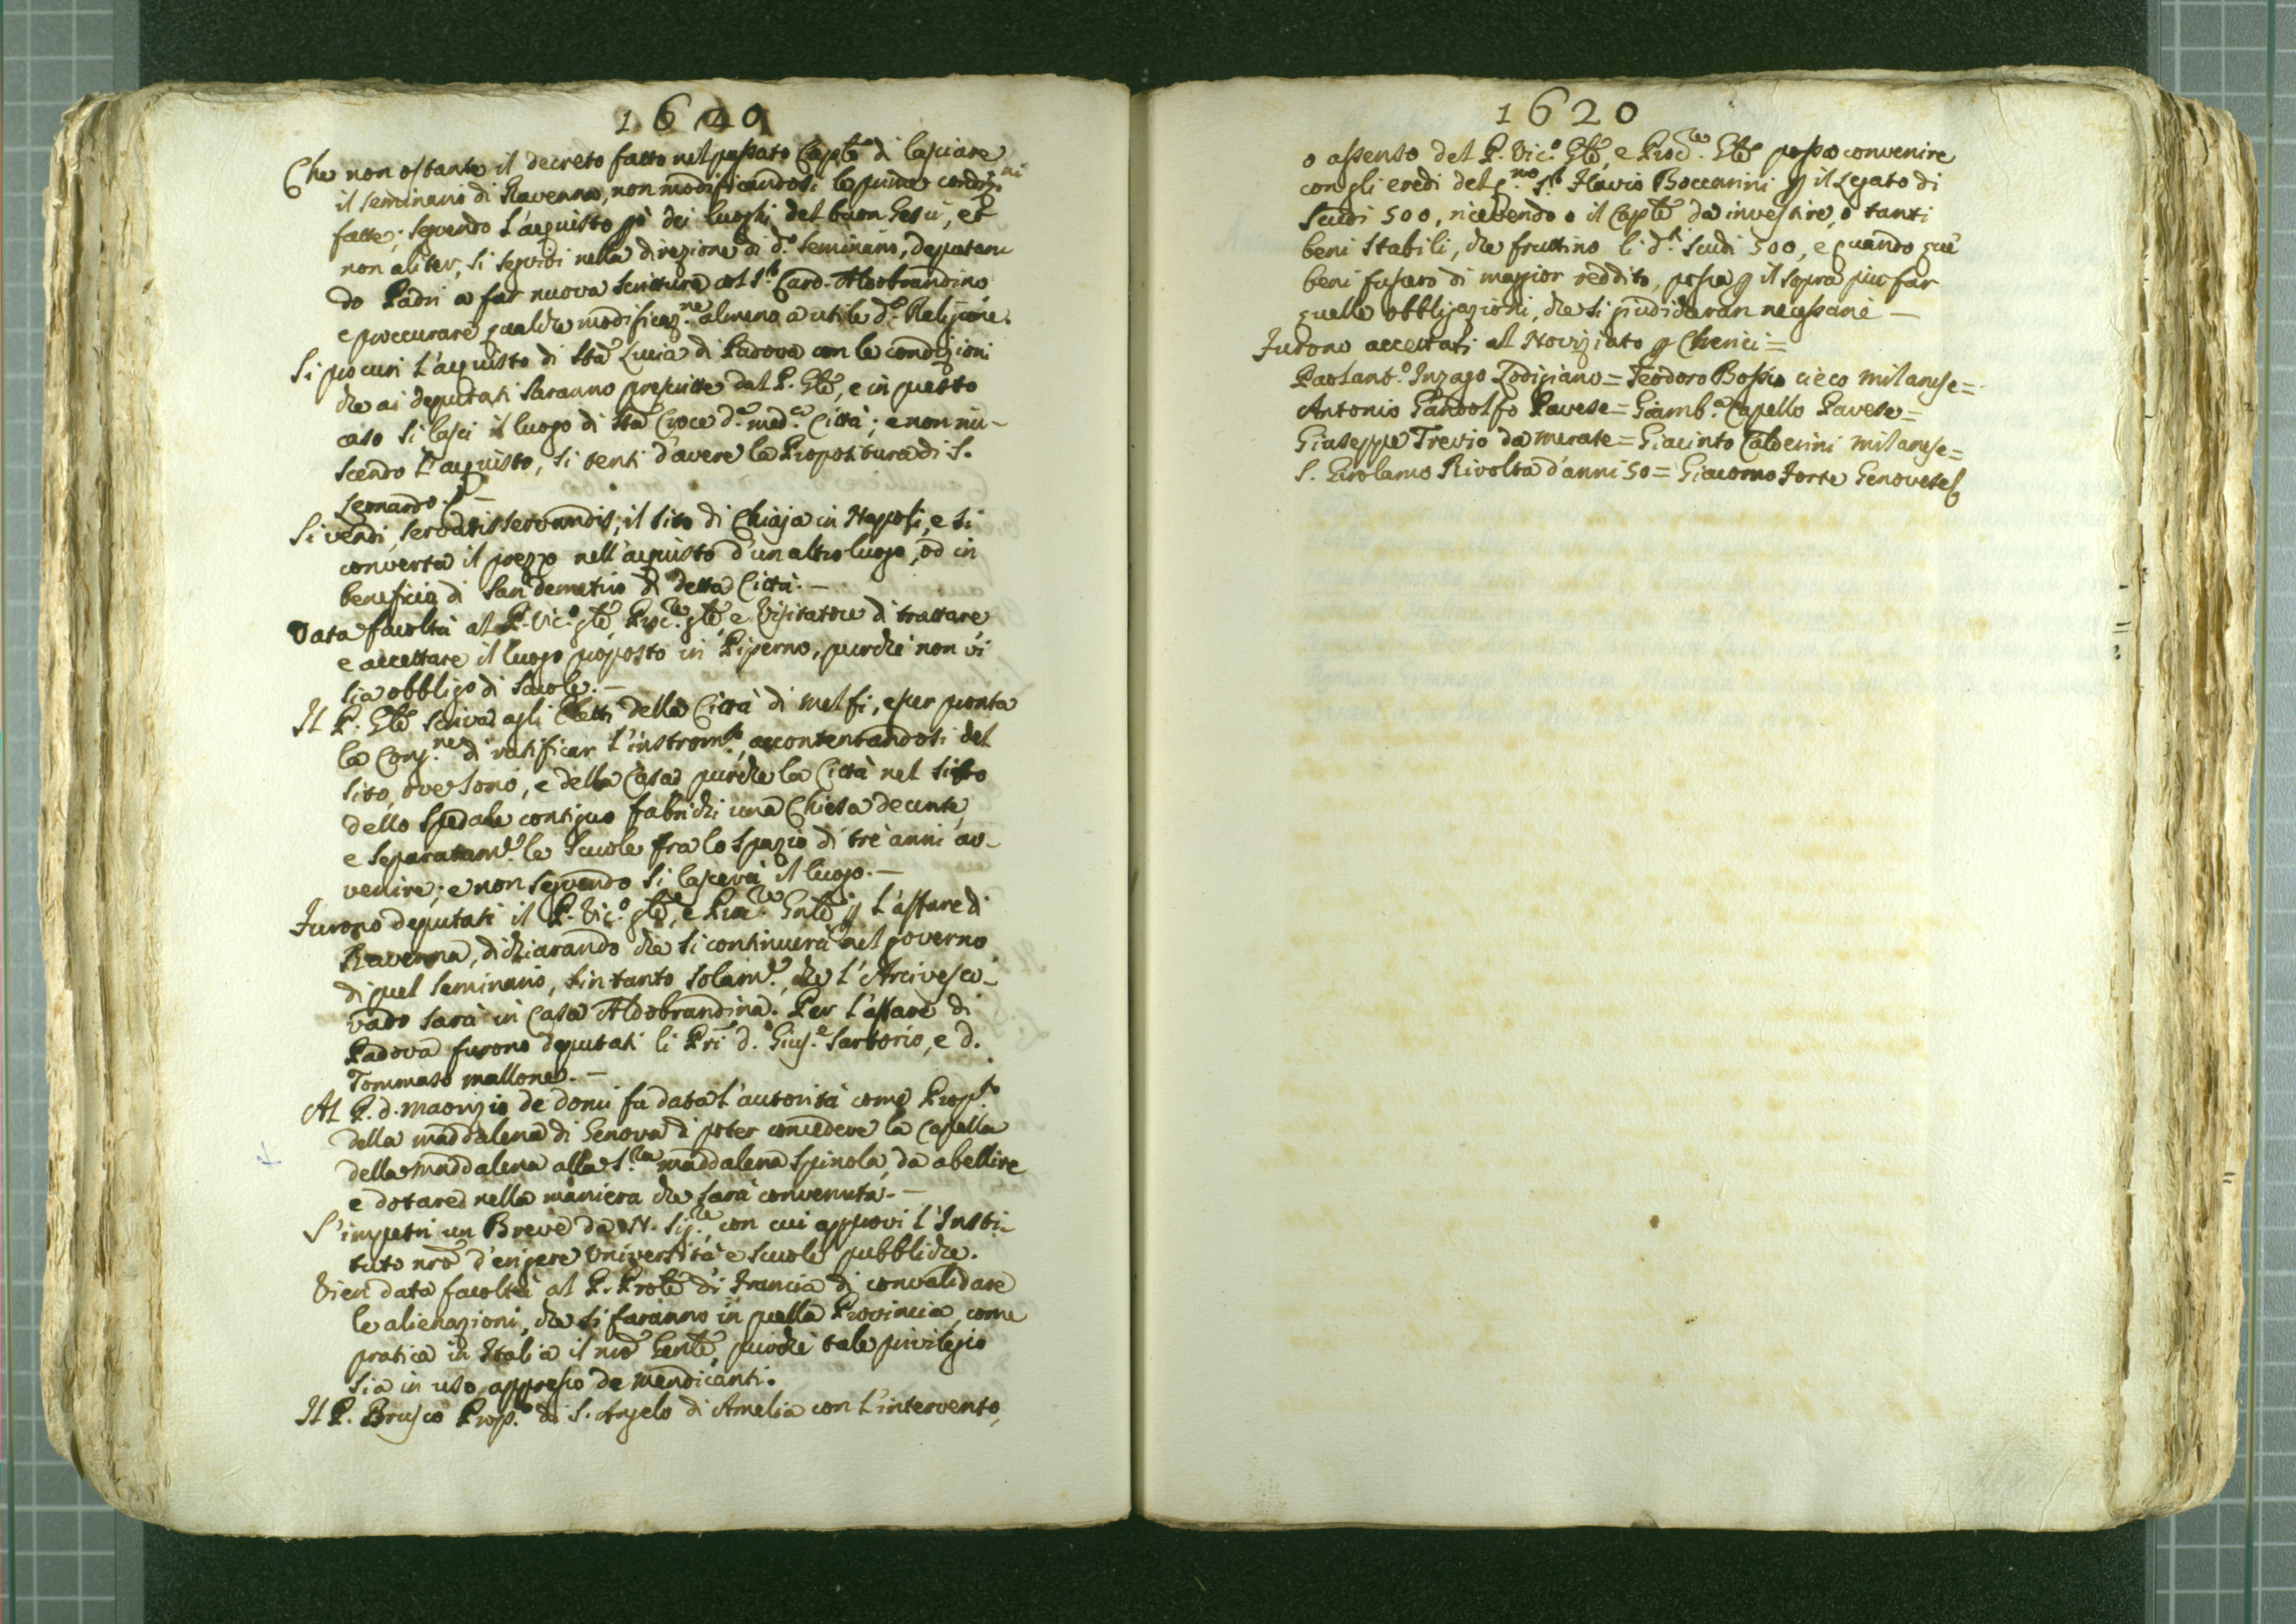 1620
Che non ostante il decreto fatto nel passato Caplõ di lasciare
il seminario di Ravenna, non modificandosi le prime condiz.ni
fatte; seguendo l'aquisto pò dei luoghi del buon Gesù, et
non aliter, si seguiti nella direzione di d.o Seminario, deputan
do Padri a far nuova scrittura col S.r Card. Aldobrandino
e proccurare qualche modificaz.ne almeno a utile d.a Religione.
Si procuri l'aquisto di Sta Lucia di Padova con le condizioni
che ai deputati saranno prescritte dal P. Glẽ, e in questo
caso si lasci il luogo di Sta Croce d.a med.a Città; e non riu-
scendo l'aquisto, si tenti d'avere la Propositura di S.
Leonardo. —
Si vendi, servatis servandis, il sito di Chiaja in Nappoli, e si
converta il prezzo nell'aquisto d'un altro luogo, od in
beneficio di San demetrio di detta Città. —
Data facoltà al P. Vic.o glẽ, Proc.re glẽ e Visitatore di trattare
e accettare il luogo proposto in Piperno, purchè non vi
sia obbligo di scuole. —
Il P. Glẽ scriva agli Eletti della Città di Melfi, esser pronta
la Cong.ne di ratificar l'instrom.to, accontentandosi del
sito, ove sono, e della Casa, purchè la Città nel sito
dello Spedale contiguo fabrichi una Chiesa decente,
e separatam.e le scuole fra lo spazio di trè anni av-
venire; e non seguendo si lascerà il luogo. —
Furono deputati il P. Vic.o glẽ, e Proc.re Gnlẽ p l'affare di
Ravenna, dichiarando che si continuerà nel governo
di quel seminario, sintanto solam.e, che l'Arcivesco-
vado sarà in Casa Aldobrandina. Per l'affare di
Padova furono deputati li Pri d. Gius.e Sartorio, e d.
Tommaso Mallone. —
Al P. d. Maorizio de Domi fu data l'autorità come Prop.to
della Maddalena di Genova di poter concedere la Capella
della Maddalena alla S.ra Maddalena Spinola, da abellire
e dotare nella maniera che sarà convenuta. —
S'impetri un Breve da N. Sig.re, con cui approvi l'Insti-
tuto nrõ d'erigere Università e scuole pubbliche.
Vien data facoltà al P. Prolẽ di Francia di convalidare
le alienazioni, che si faranno in quella Provincia, come
pratica in Italia il nrõ Genlẽ, purchè tale privilegio
sia in uso appresso de Mendicanti.
Il P. Brusco Prop.to di S. Angelo di Amelia con l'intervento,
1620
o assenso del P. Vic.o Glẽ, e Proc.re Glẽ possa convenire
con gli eredi del q.no S.r Flavio Boccarini p il Legato di
Scudi 500, ricevendo o il Caplẽ da investire, o tanti
beni stabili, che fruttino li d.ti scudi 500, e quando que'
beni fussero di maggior reddito, possa p il sopra più far
quelle obbligazioni, che si giudicheran necessarie —
Furono accettati al Noviziato p Chierici =
Paolant.o Inzago Lodigiano = Teodoro Bossio cieco Milanese =
Antonio Gandolfo Pavese = Giamb.a Capello Pavese =
Giuseppe Trevio da Merate = Giacinto Calderini Milanese =
S. Girolamo Rivolta d'anni 50 = Giacomo Forte Genovese